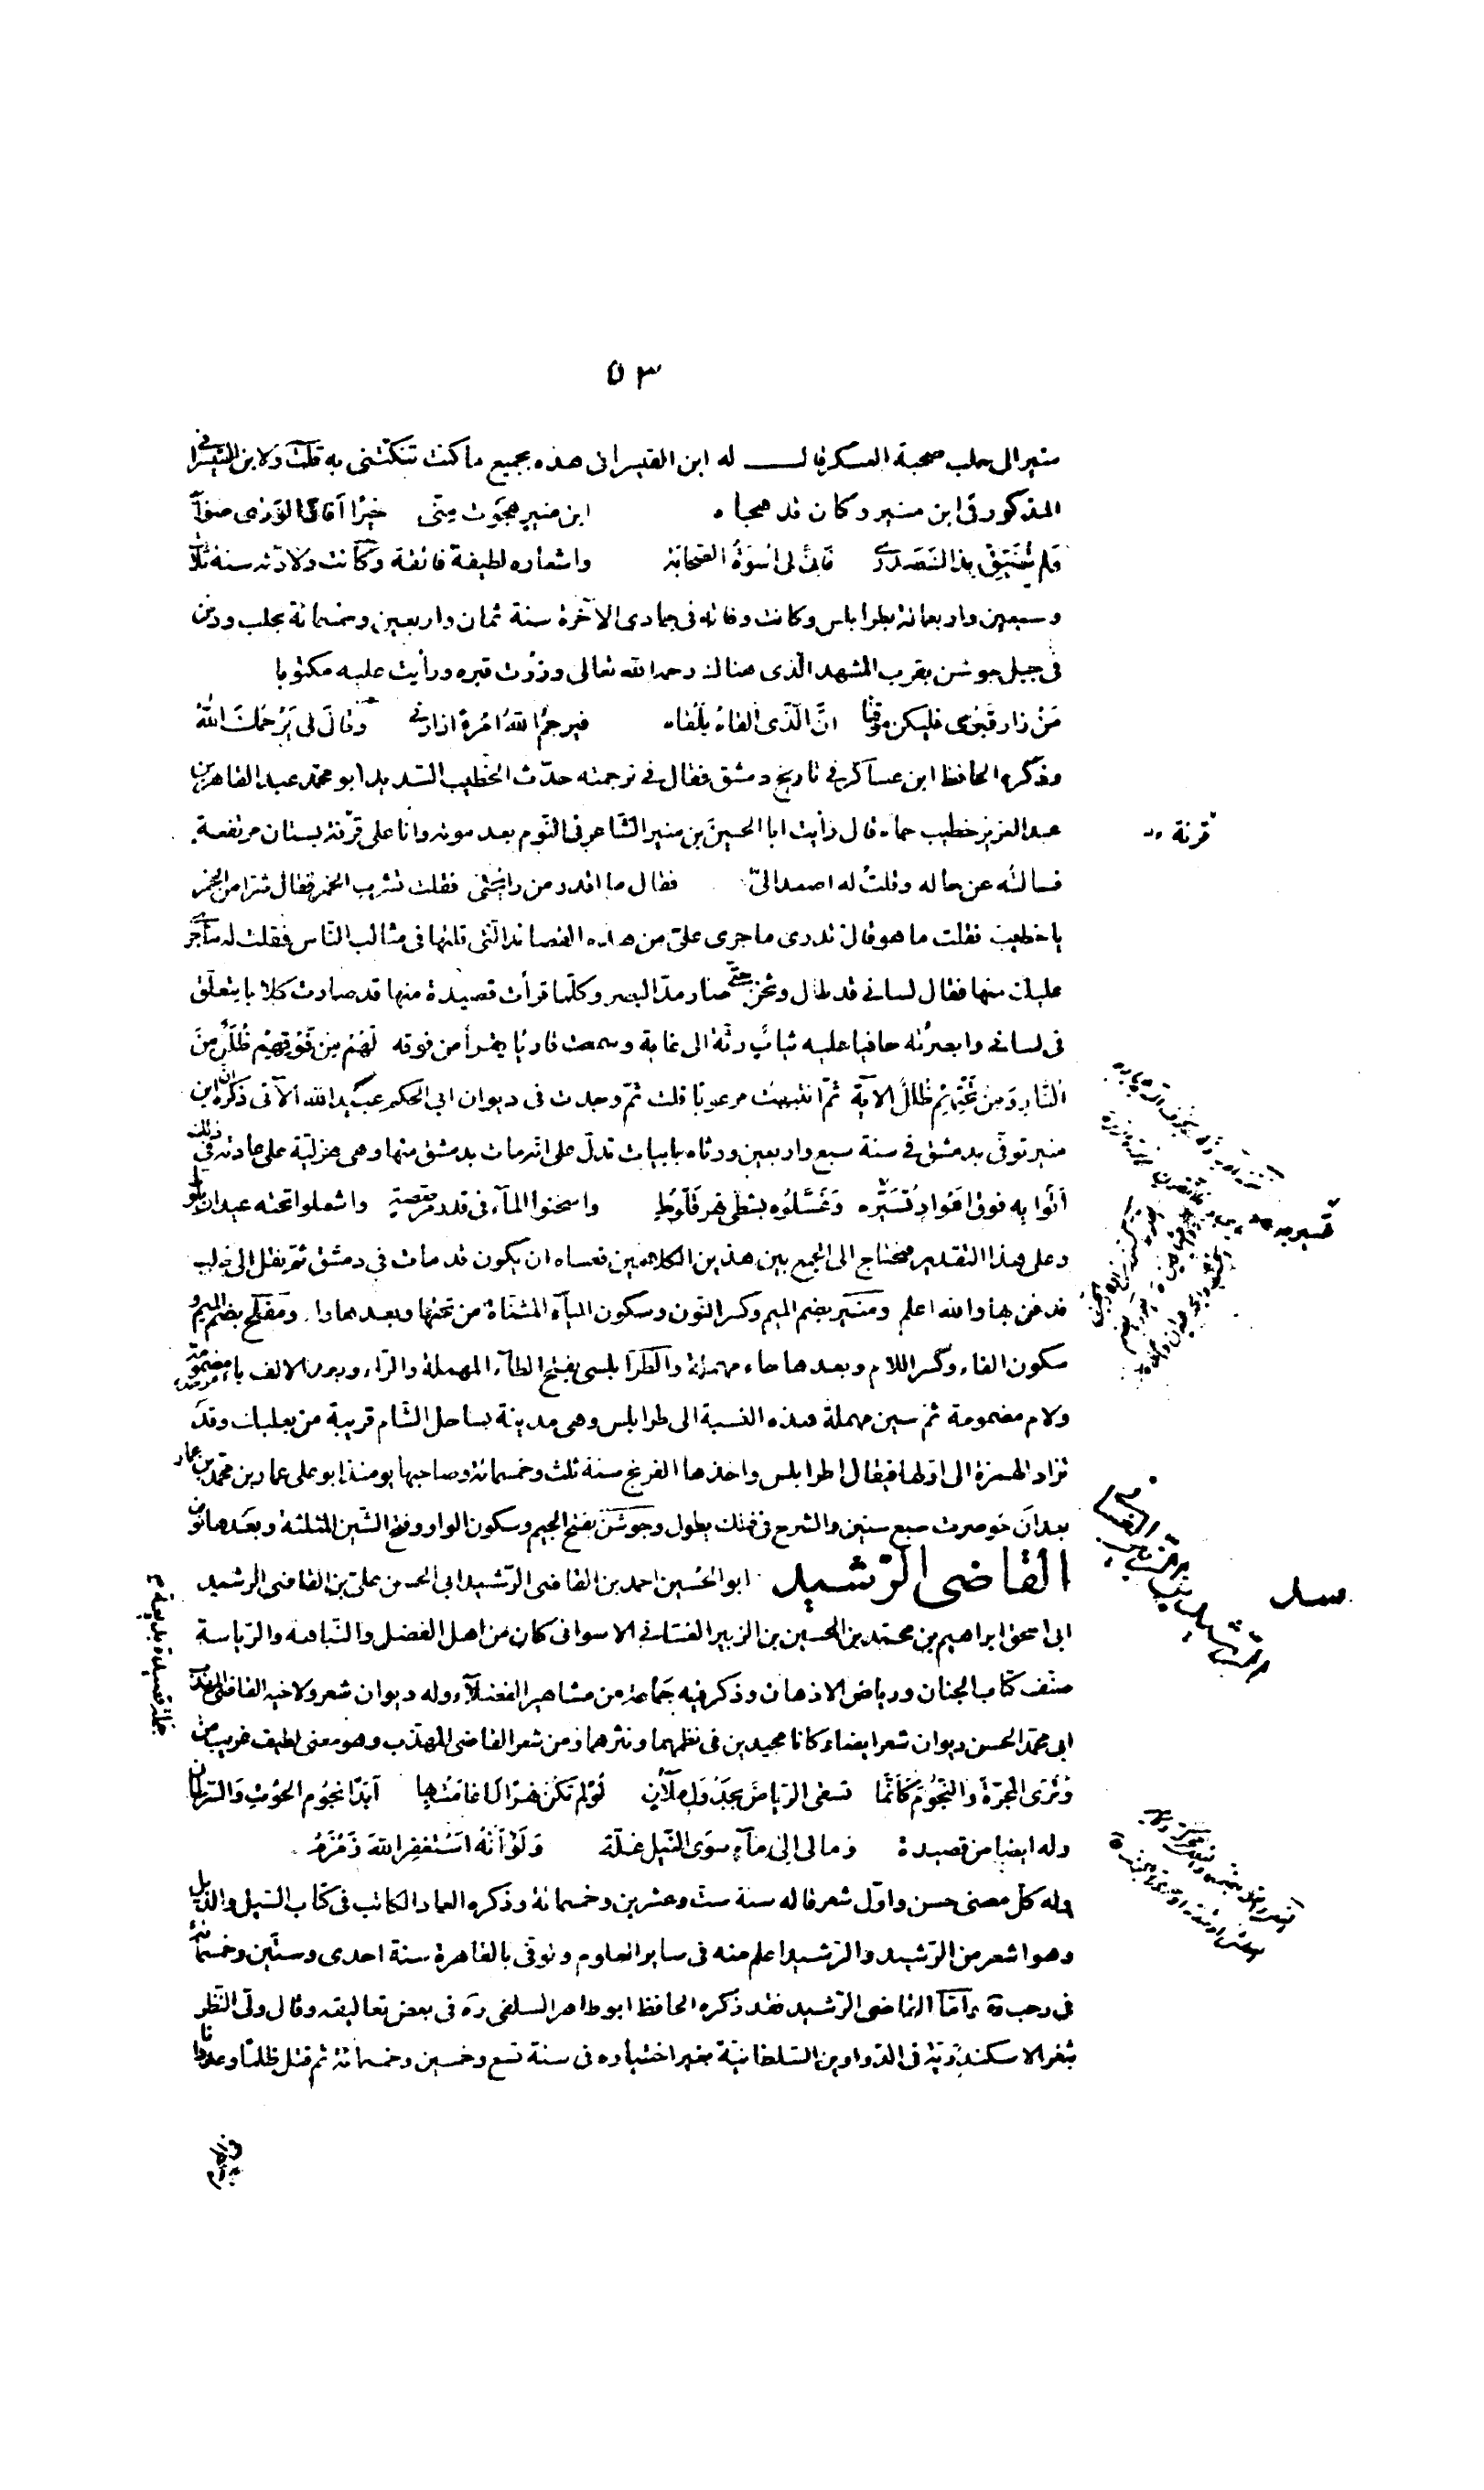 ٥٣
منير الى حلب صحبة العسكر فقال له ابن القيسرانى هذه بجميع ما كنت تنكتنى به قلت ولابن القيسرانى
المذكور فى ابن منير وكان قد هجاه ابن منير هجوت منى خيرا افاد الورى صوابه
ولم تضيق بذاك صدرى فان لى اسوة الصحابة واشعاره لطيفة فائقة وكانت ولادته سنة ثلاث
وسبعين واربعمائة بطرابلس وكانت وفاته فى جمادى الآخرة سنة ثمان واربعين وخمسمائة بحلب ودفن
فى جبل جوشن بقرب المشهد الذى هناك رحمه الله تعالى وزرت قبره ورأيت عليه مكتوبا
من زار قبرى فليكن موقنا ان الذى القاه يلقاه فيرحم الله امرءا زارنى وقال لى يرحمك الله
وذكره الحافظ ابن عساكر فى تاريخ دمشق فقال فى ترجمته حدث الخطيب السديد ابو محمد عبد القاهر بن
عبد العزيز خطيب حماه قال رأيت ابا الحسين بن منير الشاعر فى النوم بعد موته وانا على قرنة بستان مرتفعة
قرنة
فسالته عن حاله وقلت له اصعد الى فقال ما اقدر من رايحتى فقلت تشرب الخمر فقال شرا من الخمر
يا خطيب فقلت ما هو فقال تدرى ما جرى على من هذه القصائد التى قلتها فى مثالب الناس فقلت له ما جرى
عليك منها فقال لسانى قد طال وثخن حتى صار مد البصر وكلما قرأت قصيدة منها قد صارت كلابا يتعلق
فى لسانى وابصرته حافيا عليه ثياب رثة الى غاية وسمعت قاريا يقرأ من فوقه لهم من فوقهم ظلل من
النار ومن تحتهم ظلل الآية ثم انتبهت مرعوبا قلت ثم وجدت فى ديوان ابى الحكم عبيد الله الآتى ذكره ان ابن
منير توفى بدمشق فى سنة سبع واربعين ورثاه بابيات تدل على انه مات بدمشق منها وهى هزلية على عادته فى ذلك
اتوا به فوق اعواد تسيره وغسلوه بشطى نهر قلوط واسخنوا الماء فى قدر مرصصة واشعلوا تحته عيدان بلوط
وعلى هذا التقدير فيحتاج الى الجمع بين هذين الكلامين فعساه ان يكون قد مات فى دمشق ثم نقل الى حلب
فدفن بها والله اعلم ومنير بضم الميم وكسر النون وسكون الياء المثناة من تحتها وبعدها راء ومفلح بضم الميم و
سكون الفاء وكسر اللام وبعدها حاء مهملة والطرابلسى بفتح الطاء المهملة والراء وبعد الالف باء مضمومة موحدة
ولام مضمومة ثم سين مهملة هذه النسبة الى طرابلس وهى مدينة بساحل الشام قريبة من بعلبك وقد
تزاد الهمزة الى اولها فيقال اطرابلس واخذها الفرنج سنة ثلث وخمسمائة وصاحبها يومئذ ابو على عمار بن محمد بن عمار
بعد ان حوصرت سبع سنين والشرح فى ذلك يطول وجوشن بفتح الجيم وسكون الواو وفتح الشين المثلثة وبعدها نون
القاضى الرشيد ابو الحسين احمد بن القاضى الرشيد ابى الحسن على بن القاضى الرشيد
ابى اسحق ابراهيم بن محمد بن الحسين بن الزبير الغسانى الاسوانى كان من اهل الفضل والنباهة والرياسة
صنف كتاب الجنان ورياض الاذهان وذكر فيه جماعة من مشاهير الفضلاء وله ديوان شعر ولاخيه القاضى المهذب
ابى محمد الحسن ديوان شعر ايضا وكانا مجيدين فى نظمهما ونثرهما ومن شعر القاضى المهذب وهو معنى لطيف غريب من
وترى المجرة والنجوم كانما تسقى الرياض بجدول ملآن لو لم تكن نهرا لما عامت بها ابدا نجوم الحوت والسرطان
وله ايضا من قصيدة ومالى الى ماء سوى النيل غلة ولو انه استغفر الله زمزم
وله كل معنى حسن واول شعر قاله سنة ست وعشرين وخمسمائة وذكره العماد الكاتب فى كتاب السيل والذيل
وهو اشعر من الرشيد والرشيد اعلم منه فى ساير العلوم وتوفى بالقاهرة سنة احدى وستين وخمسمائة
فى رجب واما القاضى الرشيد فقد ذكره الحافظ ابو طاهر السلفى ره فى بعض تعاليقه وقال ولى النظر
بثغر الاسكندرية فى الدواوين السلطانية بغير اختياره فى سنة تسع وخمسين وخمسمائة ثم قتل ظلما وعدوانا